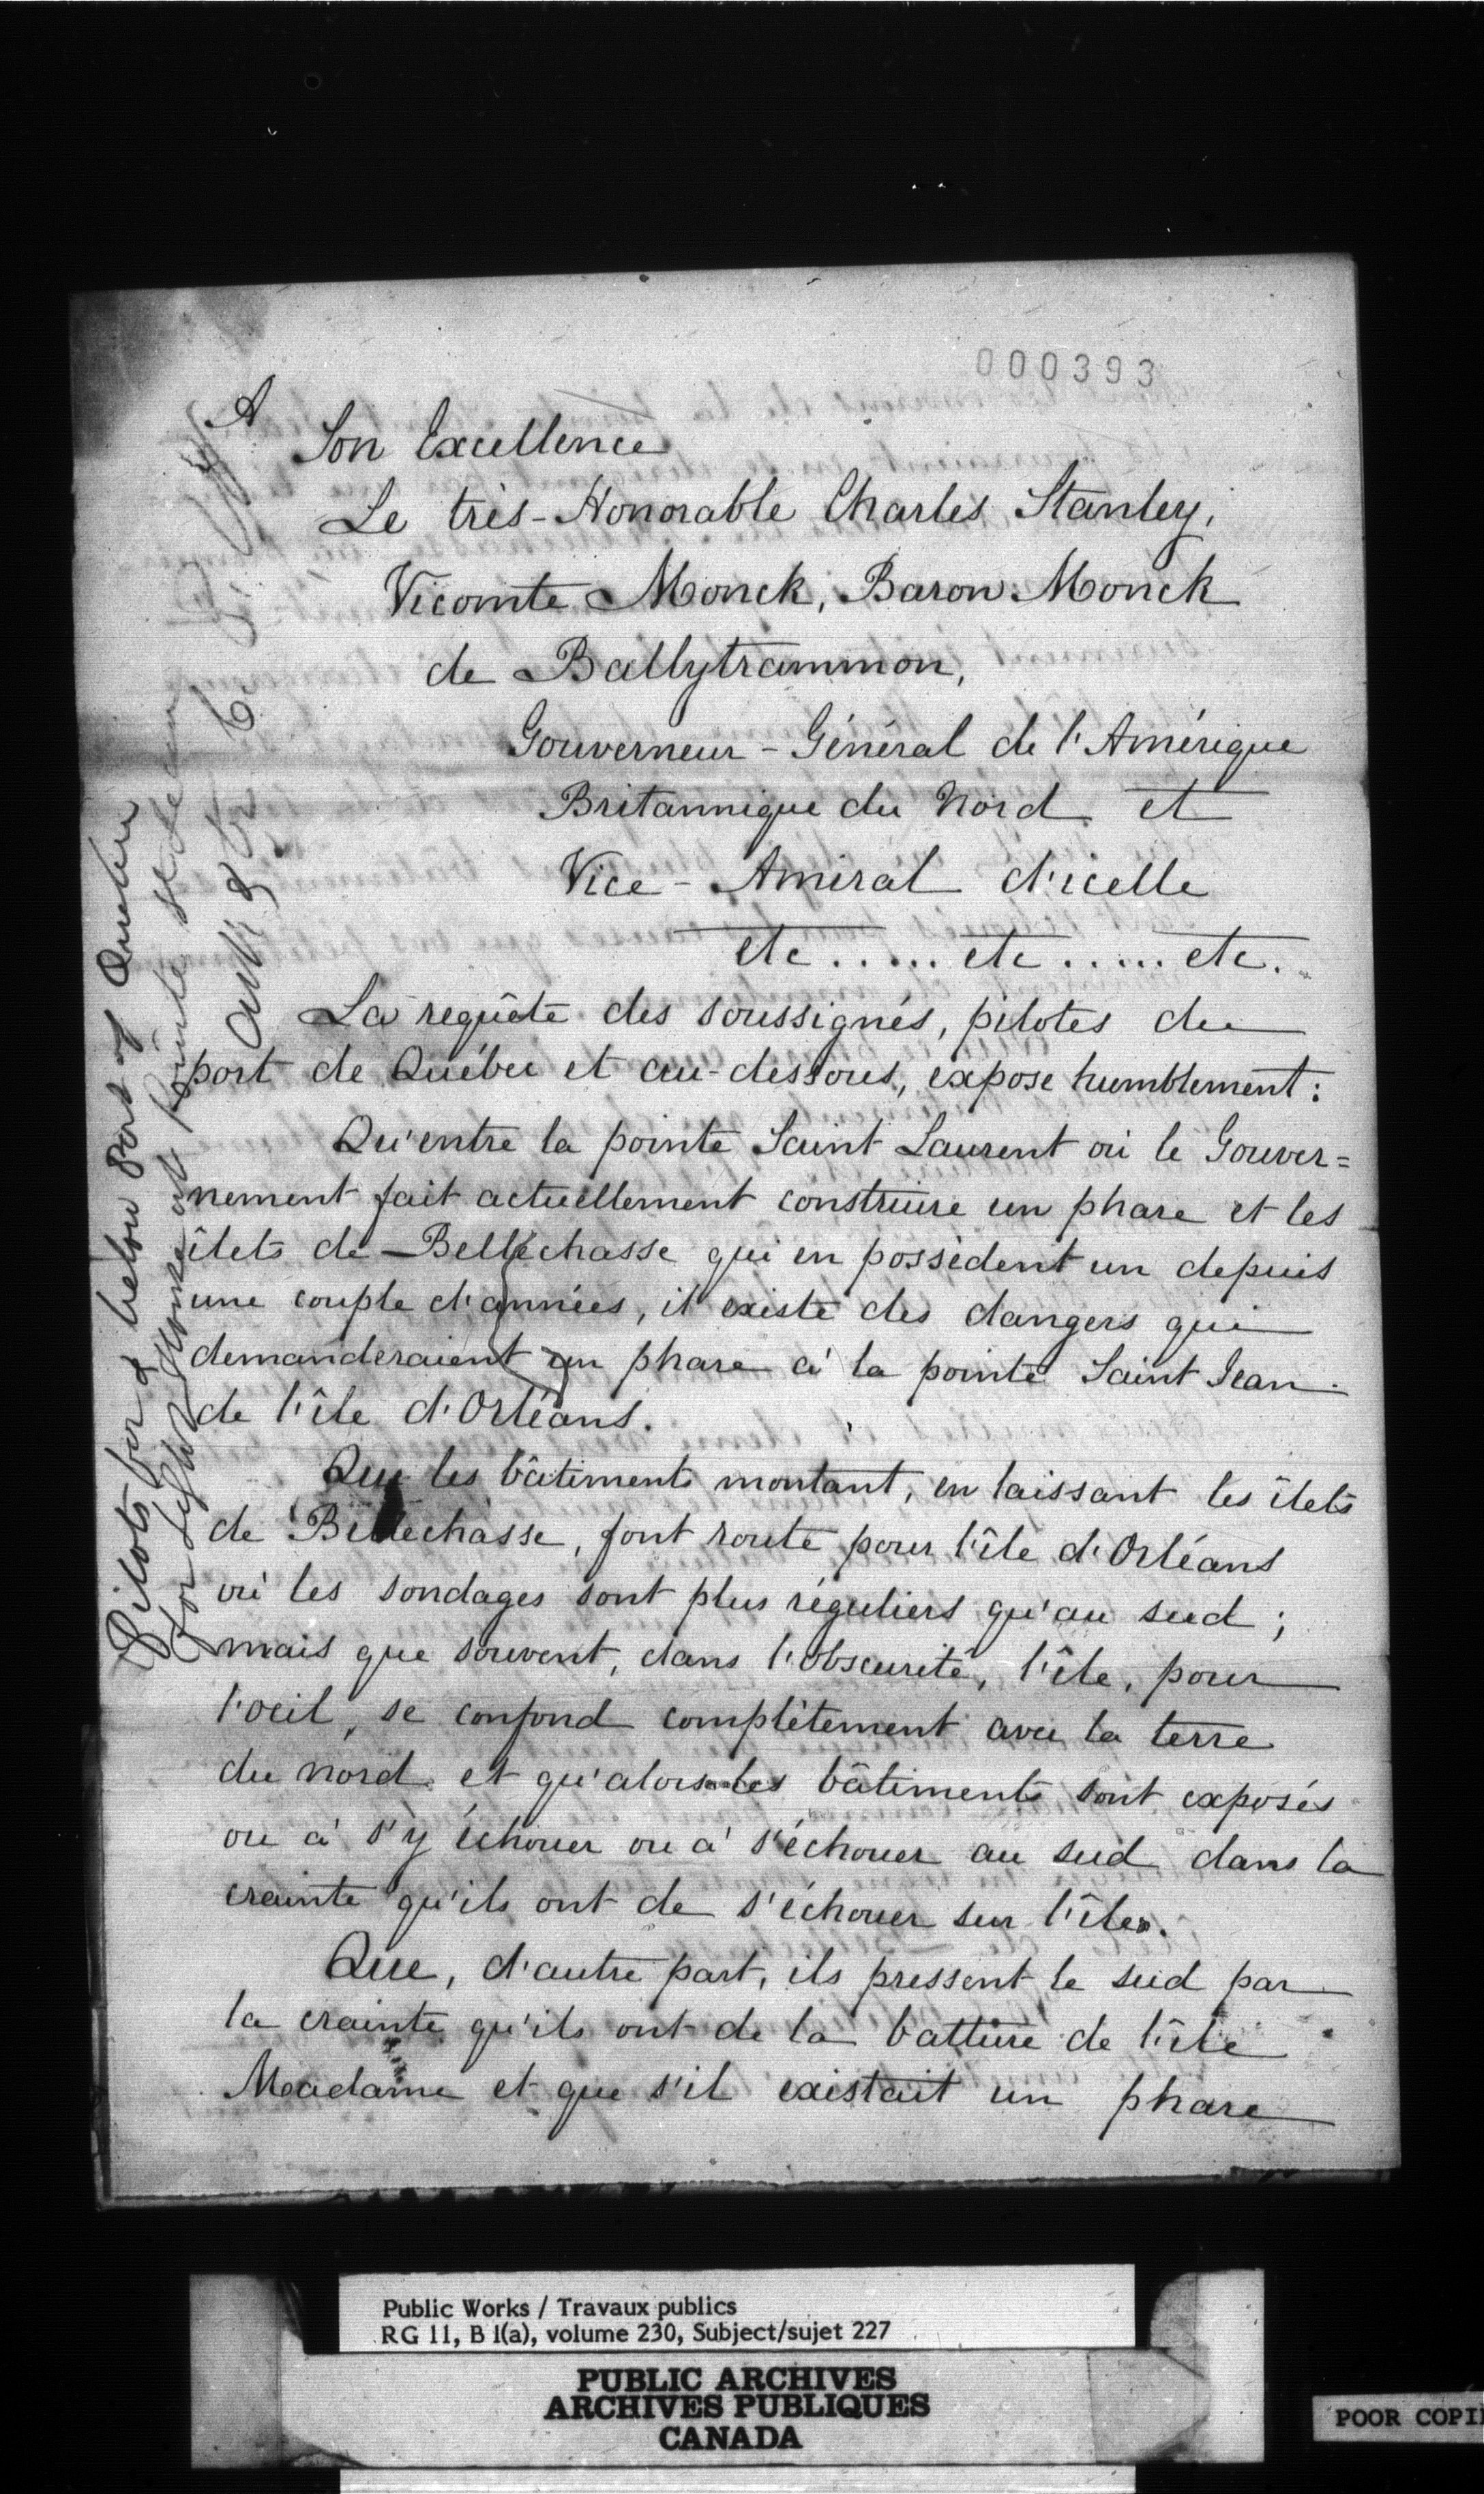 000393
A
Son Excellence
Le très-Honorable Charles Stanley,
Vicomte Monck, Baron Monck
de Ballytrammon,
Gouverneur-Général de l'Amérique
Britannique du Nord et
Vice-Amiral d'icelle
etc.....etc.....etc.
La requête des soussignés, pilotes du
port de Québec et au-dessous, expose humblement:
Qu'entre la pointe Saint Laurent où le Gouver=
nement fait actuellement construire un phare et les
îlets de Bellechasse qui en possèdent un depuis
une couple d'années, il existe des dangers qui
demanderaient un phare à la pointe Saint Jean
de l'île d'Orléans.
Que les bâtiments montant, en laissant les îlets
de Bellechasse, font route pour l'île d'Orléans
où les sondages sont plus réguliers qu'au sud;
mais que souvent, dans l'obscurité, l'île, pour
l'oeil, se confond complètement avec la terre
du nord et qu'alors les bâtiments sont exposés
ou à s'y échouer ou à s'échouer au sud dans la
crainte qu'ils ont de s'échouer sur l'île.
Que, d'autre part, ils pressent le sud par
la crainte qu'ils ont de la batture de l'île
Madame et que s'il existait un phare
Pilots for & below Port of Quebec
for Light House at Pointe St Jean
Public Works / Travaux publics
RG 11, B 1(a), volume 230, Subject/sujet 227
PUBLIC ARCHIVES
ARCHIVES PUBLIQUES
CANADA
POOR COPI